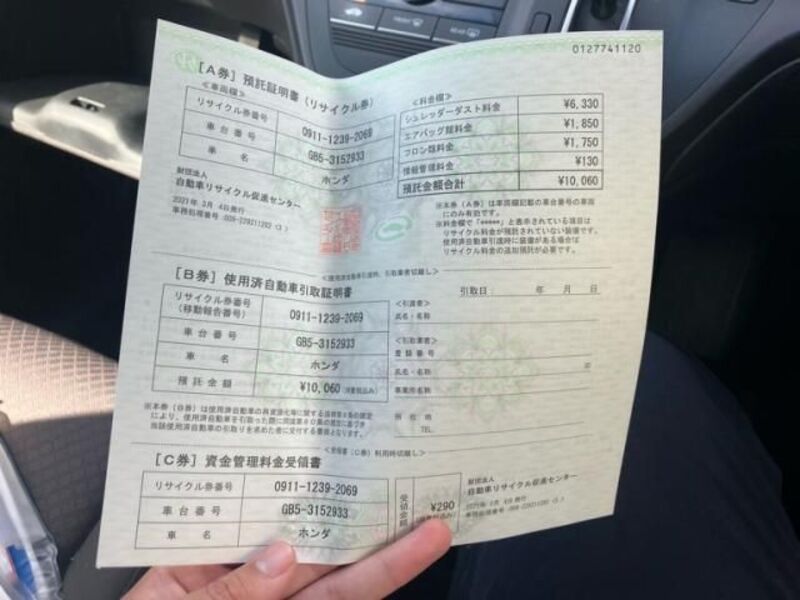 0127741120
[A券] 預託証明書(リサイクル券)
<車両欄>
リサイクル券番号 0911-1239-2069
車台番号 GB5-3152933
車名 ホンダ
<料金欄>
シュレッダーダスト料金 ¥6,330
エアバッグ類料金 ¥1,850
フロン類料金 ¥1,750
情報管理料金 ¥130
預託金額合計 ¥10,060
財団法人
自動車リサイクル促進センター
2021年 3月 4日発行
※本券(A券)は車両欄記載の車台番号の車両
にのみ有効です。
※料金欄で「*****」と表示されている項目は
リサイクル料金が預託されていない装備です。
使用済自動車引渡時に装備がある場合は
リサイクル料金の追加預託が必要です。
<使用済自動車引渡時、引取業者切離し>
[B券] 使用済自動車引取証明書
引取日: 年 月 日
リサイクル券番号
(移動報告番号) 0911-1239-2069
車台番号 GB5-3152933
車名 ホンダ
預託金額 ¥10,060 (消費税込み)
<引渡者>
氏名・名称
<引取業者>
登録番号
氏名・名称 ㊞
事業所名称
所在地
TEL.
<受領書(C券)利用時切離し>
[C券] 資金管理料金受領書
リサイクル券番号 0911-1239-2069
車台番号 GB5-3152933
車名 ホンダ
受領金額 ¥290
(消費税込み)
財団法人
自動車リサイクル促進センター
2021年 3月 4日発行